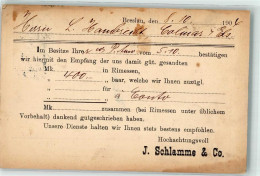 Breslau, den 8. 10. 1904
Herrn L. Handrecht Colmar i/Els.
Im Besitze Ihres vom 5.10. bestätigen
wir hiermit den Empfang der uns damit güt. gesandten
Mk. 400.— in Rimessen,
Mk. baar, welche wir Ihnen zuzügl.
für
à Conto
Mk. zusammen (bei Rimessen unter üblichem
Vorbehalt) dankend gutgeschrieben haben.
Unsere Dienste halten wir Ihnen stets bestens empfohlen.
Hochachtungsvoll
J. Schlamme & Co.